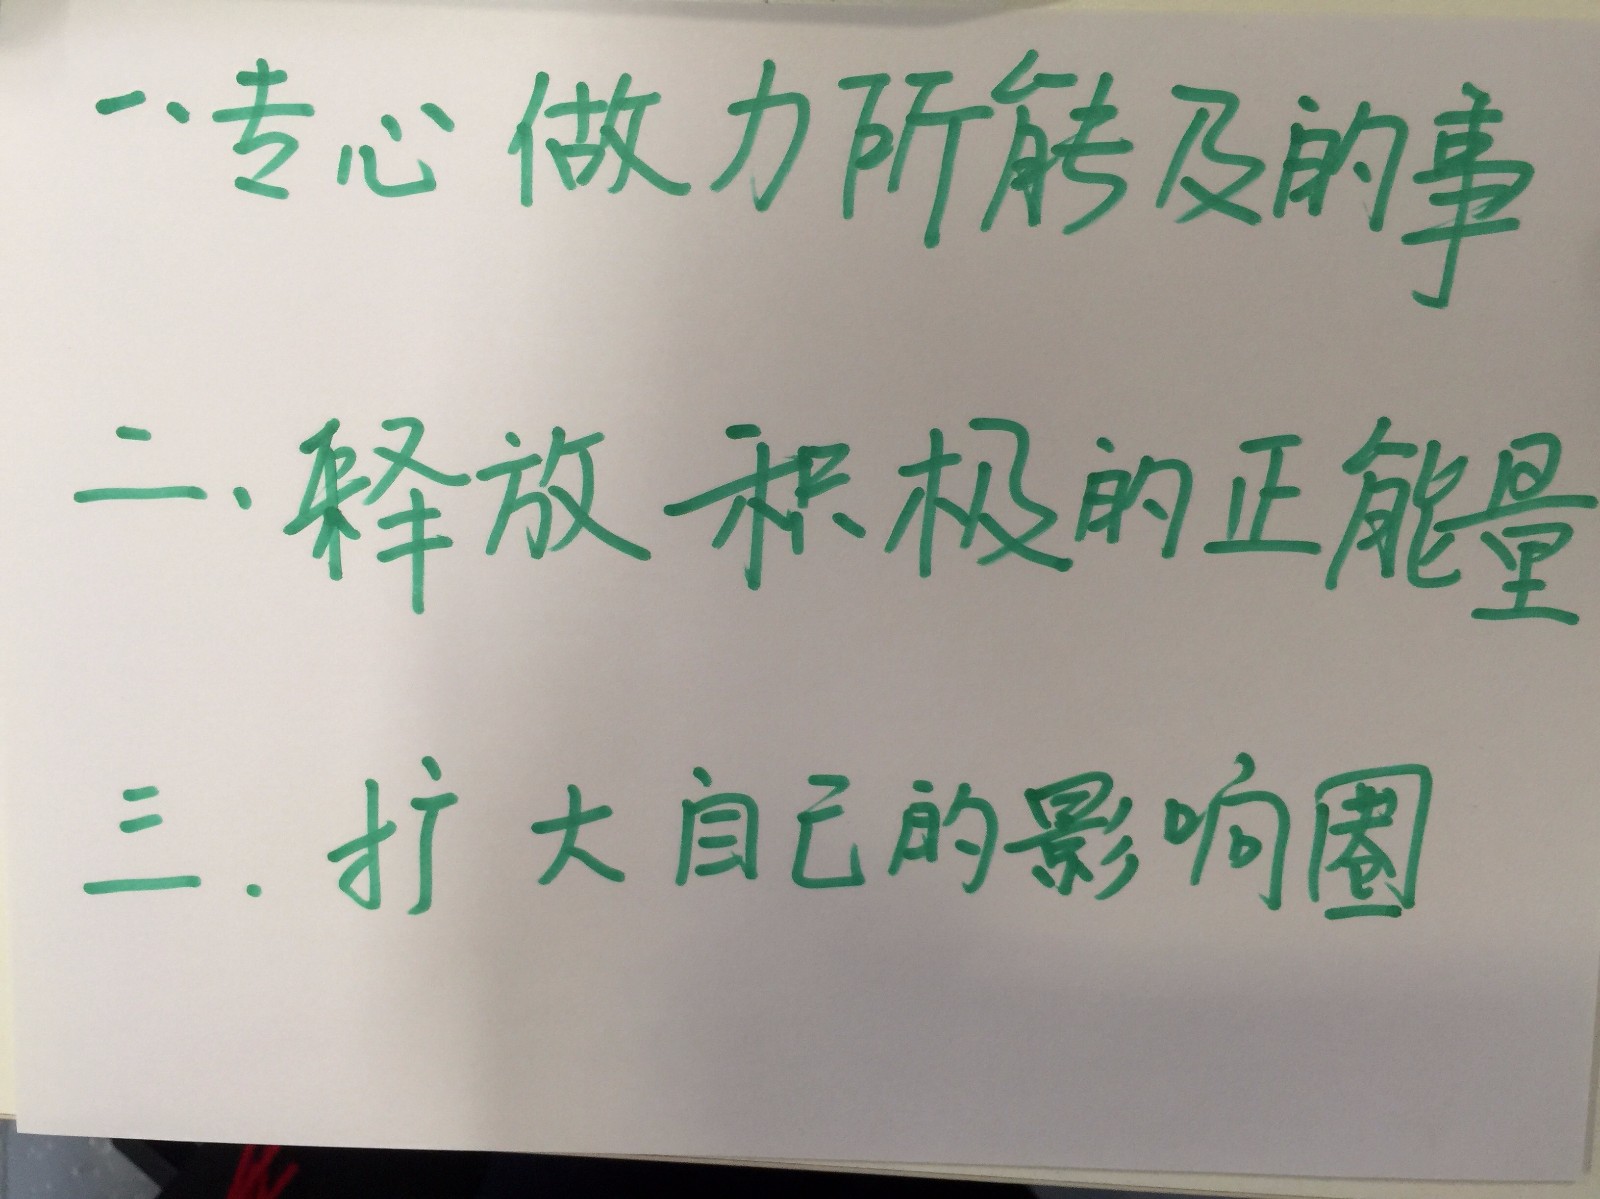 一、专心做力所能及的事
二、释放积极的正能量
三.扩大自己的影响圈